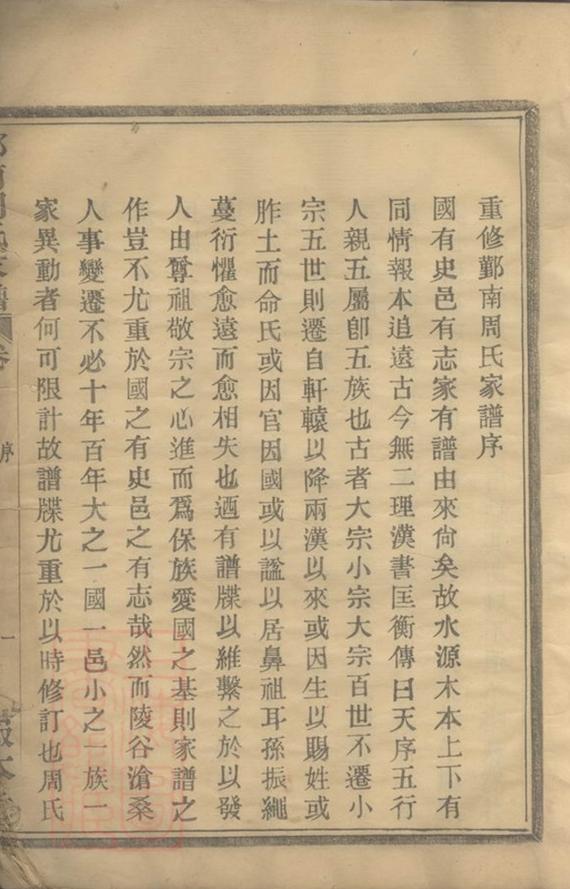 重修鄞南周氏家譜序
國有史邑有志家有譜由來尙矣故水源木本上下有
同情報本追遠古今無二理漢書匡衡傳曰天序五行
人親五屬卽五族也古者大宗小宗大宗百世不遷小
宗五世則遷自軒轅以降兩漢以來或因生以賜姓或
胙土而命氏或因官因國或以諡以居鼻祖耳孫振繩
蔓衍懼愈遠而愈相失也迺有譜牒以維繫之於以發
人由尊祖敬宗之心進而爲保族愛國之基則家譜之
作豈不尤重於國之有史邑之有志哉然而陵谷滄桑
人事變遷不必十年百年大之一國一邑小之一族一
家異動者何可限計故譜牒尤重於以時修訂也周氏
序
一